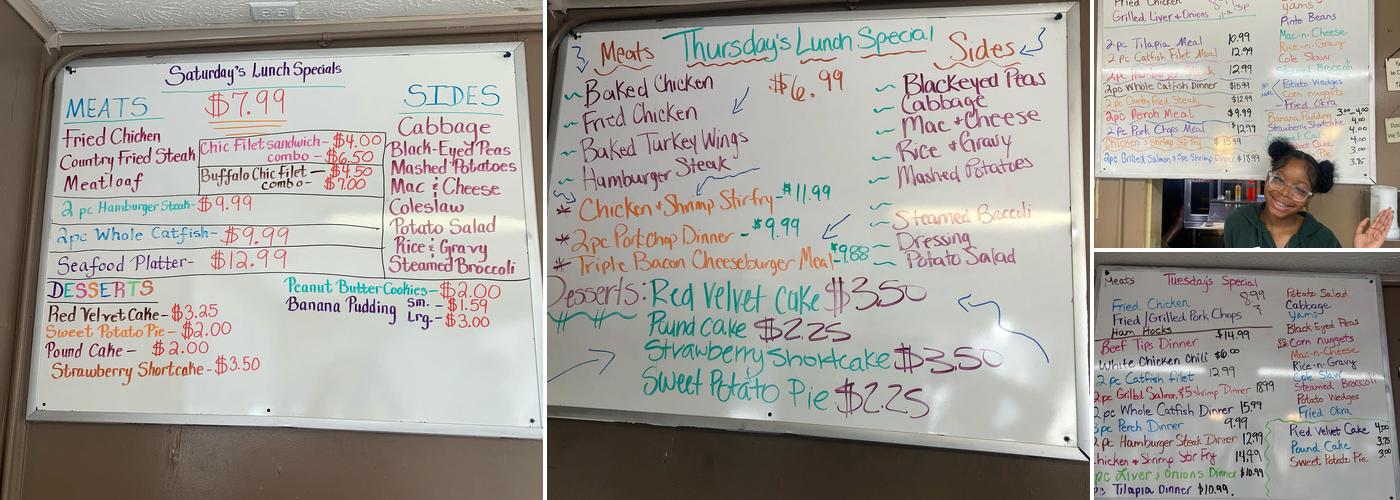 Saturday's Lunch Specials
MEATS
$7.99
SIDES
Fried Chicken
Country Fried Steak
Meatloaf
Chic Filet sandwich - $4.00
combo - $6.50
Buffalo Chic Filet - $4.50
combo - $7.00
2 pc Hamburger Steak - $9.99
2pc Whole Catfish - $9.99
Seafood Platter - $12.99
Cabbage
Black-Eyed Peas
Mashed Potatoes
Mac & Cheese
Coleslaw
Potato Salad
Rice & Gravy
Steamed Broccoli
DESSERTS
Red Velvet Cake - $3.25
Sweet Potato Pie - $2.00
Pound Cake - $2.00
Strawberry Shortcake - $3.50
Peanut Butter Cookies - $2.00
Banana Pudding sm. - $1.59
Lrg. - $3.00
Meats Thursday's Lunch Special Sides
$6.99
Baked Chicken
Fried Chicken
Baked Turkey Wings
Hamburger Steak
* Chicken + Shrimp Stirfry - $11.99
* 2pc Porkchop Dinner - $9.99
* Triple Bacon Cheeseburger Meal - $9.88
Blackeyed Peas
Cabbage
Mac + Cheese
Rice + Gravy
Mashed Potatoes
Steamed Broccoli
Dressing
Potato Salad
Desserts: Red Velvet Cake $3.50
Pound Cake $2.25
Strawberry Shortcake $3.50
Sweet Potato Pie $2.25
Fried Chicken
Grilled Liver & Onions
2 pc Tilapia Meal 10.99
2 pc Catfish Filet Meal 12.99
12.99
2 pc Whole Catfish Dinner $15.99
2 pc Country Fried Steak $12.99
2 pc Perch Meal $9.99
2 pc Pork Chops Meal $12.99
Chicken & Shrimp Stir Fry $15.99
2pc Grilled Salmon & 5pc Shrimp Dinner $18.99
Yams
Pinto Beans
Mac-n-Cheese
Rice-n-Gravy
Cole Slaw
Steamed Broccoli
Potato Wedges
Corn nuggets
Fried Okra
Banana Pudding 3.00
Strawberry Shortcake 4.00
4.00
3.00
Meats Tuesday's Special
Fried Chicken 8.99
Fried/Grilled Pork Chops
Ham Hocks
Beef Tips Dinner $14.99
White Chicken Chili $6.00
2 pc Catfish filet 12.99
2pc Grilled Salmon & 5 Shrimp Dinner 18.99
2 pc Whole Catfish Dinner 15.99
3pc Perch Dinner 9.99
2 pc Hamburger Steak Dinner 12.99
Chicken & Shrimp Stir Fry 14.99
pc Liver & Onions Dinner $10.99
pc Tilapia Dinner $10.99
Potato Salad
Cabbage
Yams
Black-Eyed Peas
Corn nuggets
Mac-n-Cheese
Rice-n-Gravy
Cole Slaw
Steamed Broccoli
Potato Wedges
Fried Okra
Red Velvet Cake 4.00
Pound Cake 3.75
Sweet Potato Pie 3.00